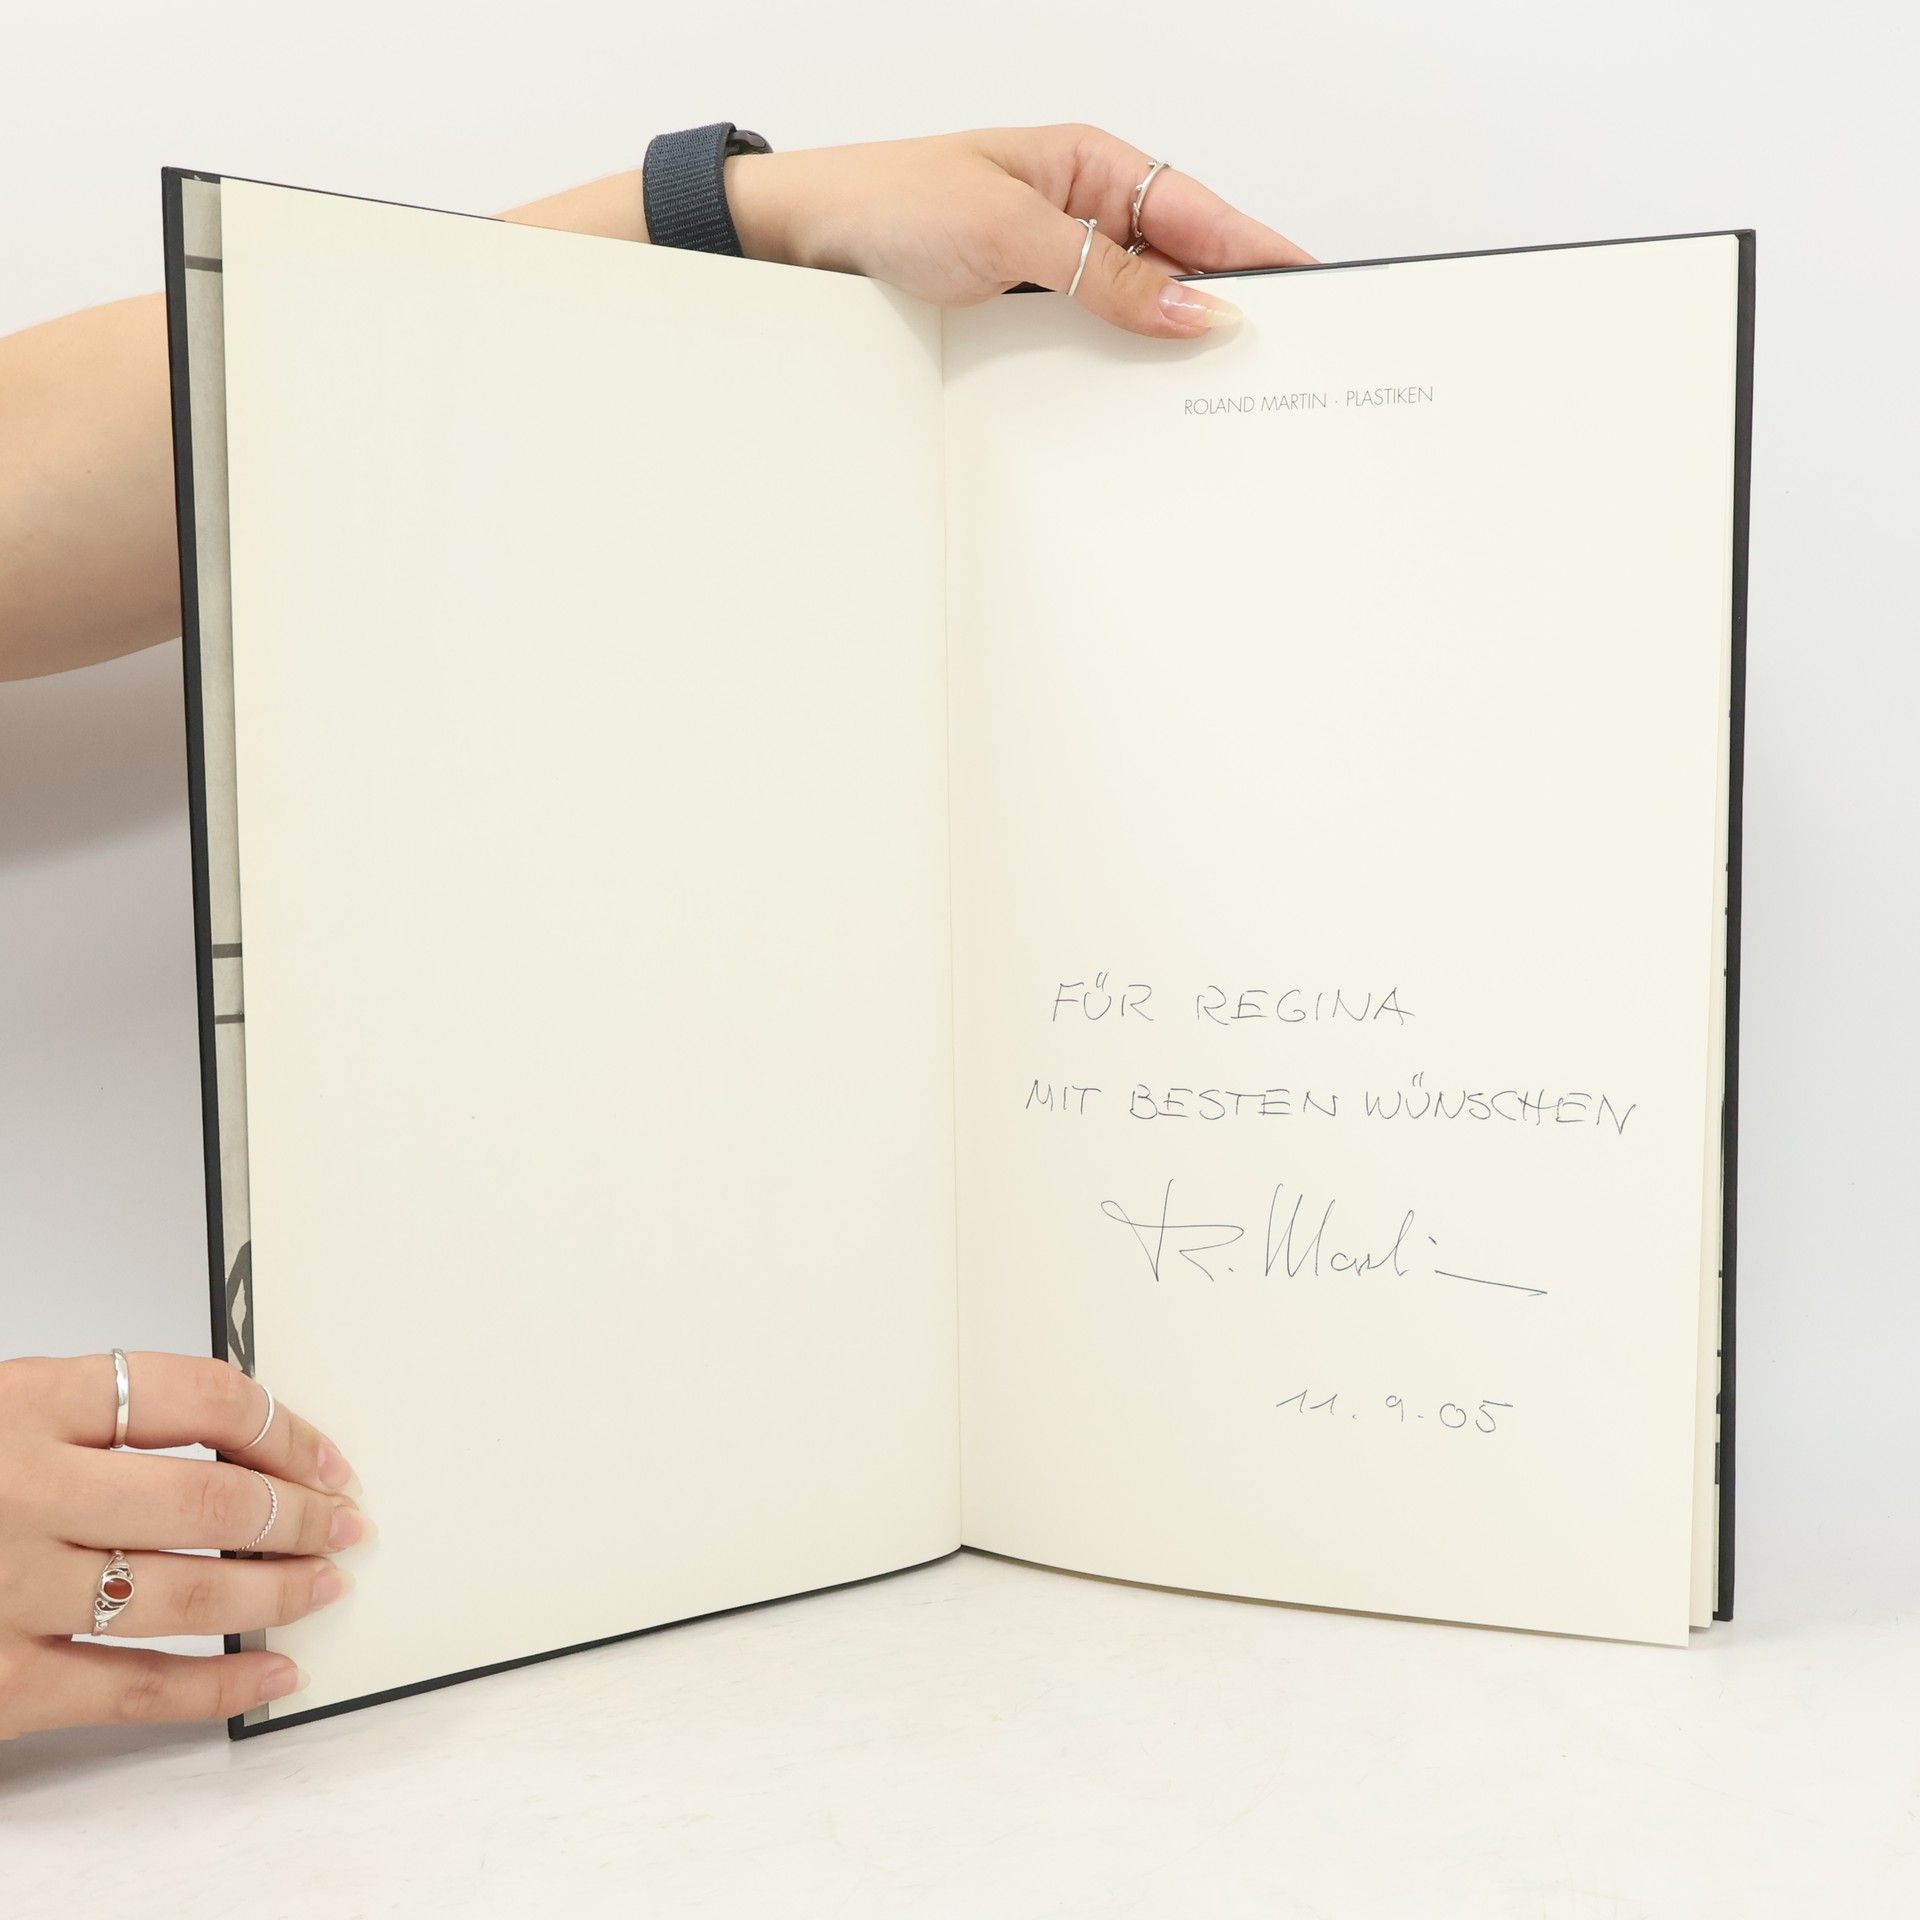 ROLAND MARTIN · PLASTIKEN
FÜR REGINA
MIT BESTEN WÜNSCHEN
R. Martin
11.9.05